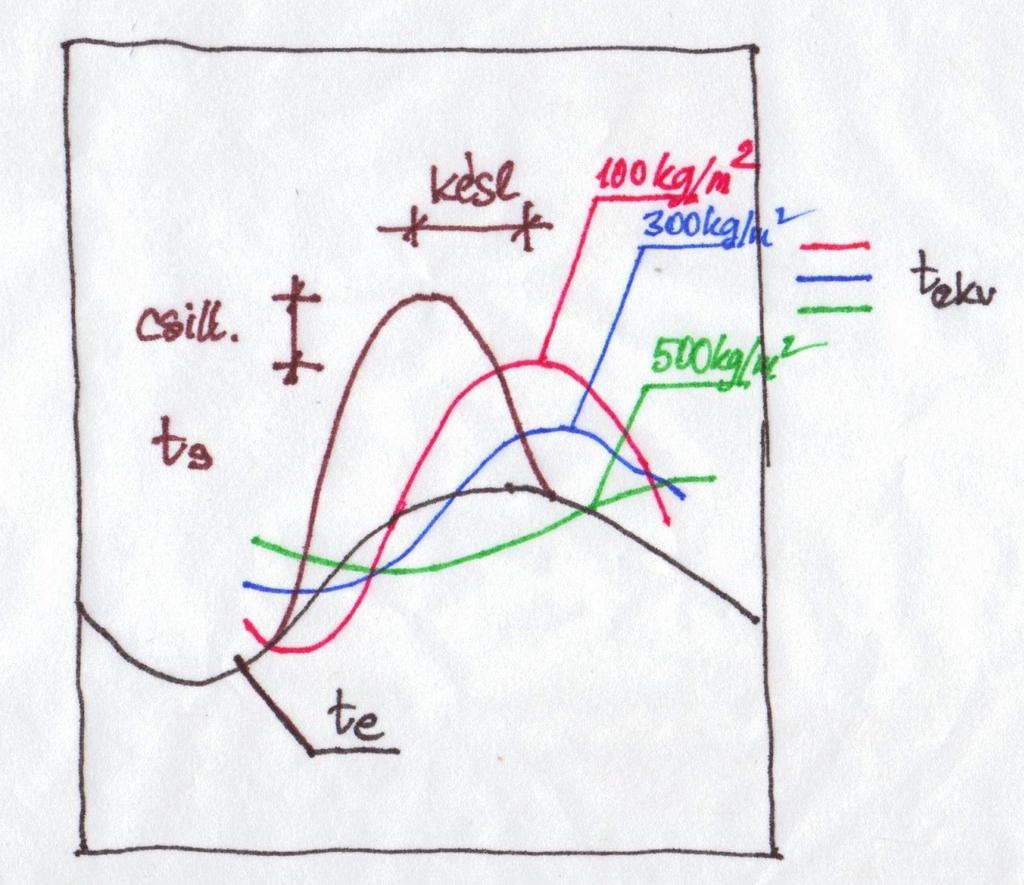 késl
100kg/m²
300kg/m²
tekv
csill.
500kg/m²
ts
te